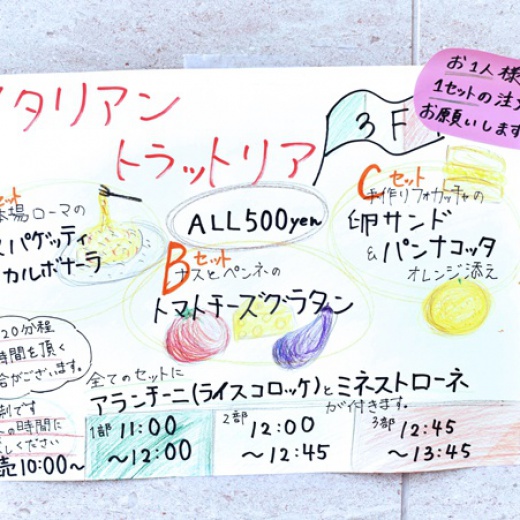 タリアン
トラットリア
3F
お1人様
1セットの注文
お願いします
セット
本場ローマの
スパゲッティ
カルボナーラ
ALL500yen
Bセット
ナスとペンネの
トマトチーズグラタン
Cセット
手作りフォカッチャの
卵サンド
&パンナコッタ
オレンジ添え
20分程
時間を頂く
合がございます。
全てのセットに
アランチーニ(ライスコロッケ)とミネストローネ
が付きます。
制です
の時間に
ください
売10:00~
1部 11:00
~12:00
2部 12:00
~12:45
3部 12:45
~13:45